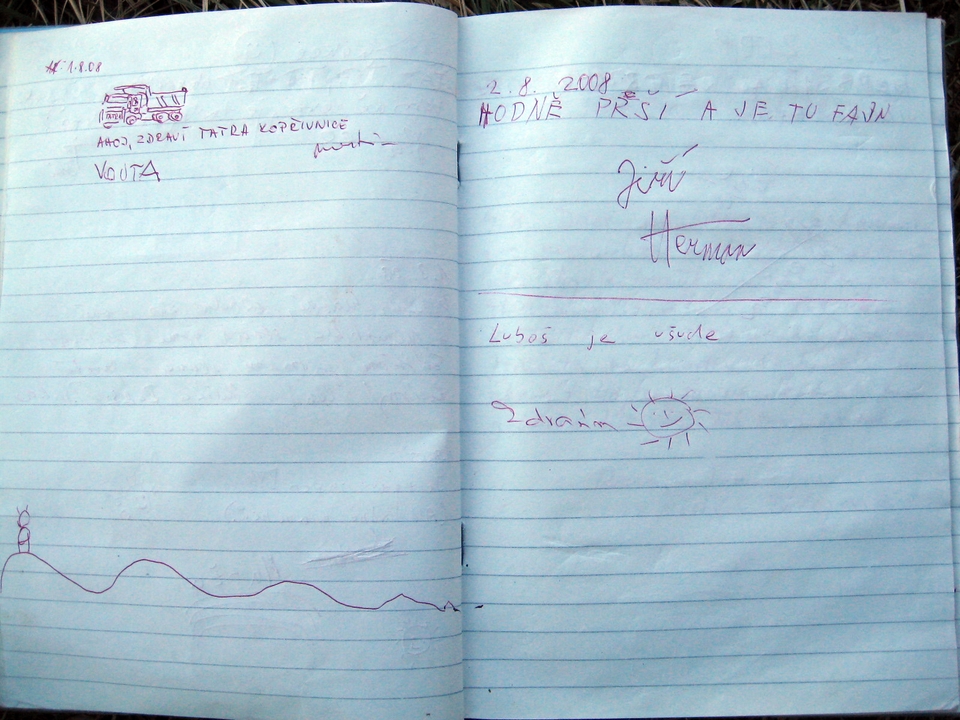 1.8.08
AHOJ, ZDRAVÍ TATRA KOPŘIVNICE
VOJTA
2.8. 2008
HODNĚ PRŠÍ A JE TU FAJN
Jiří
Herman
Luboš je všude
Zdravím